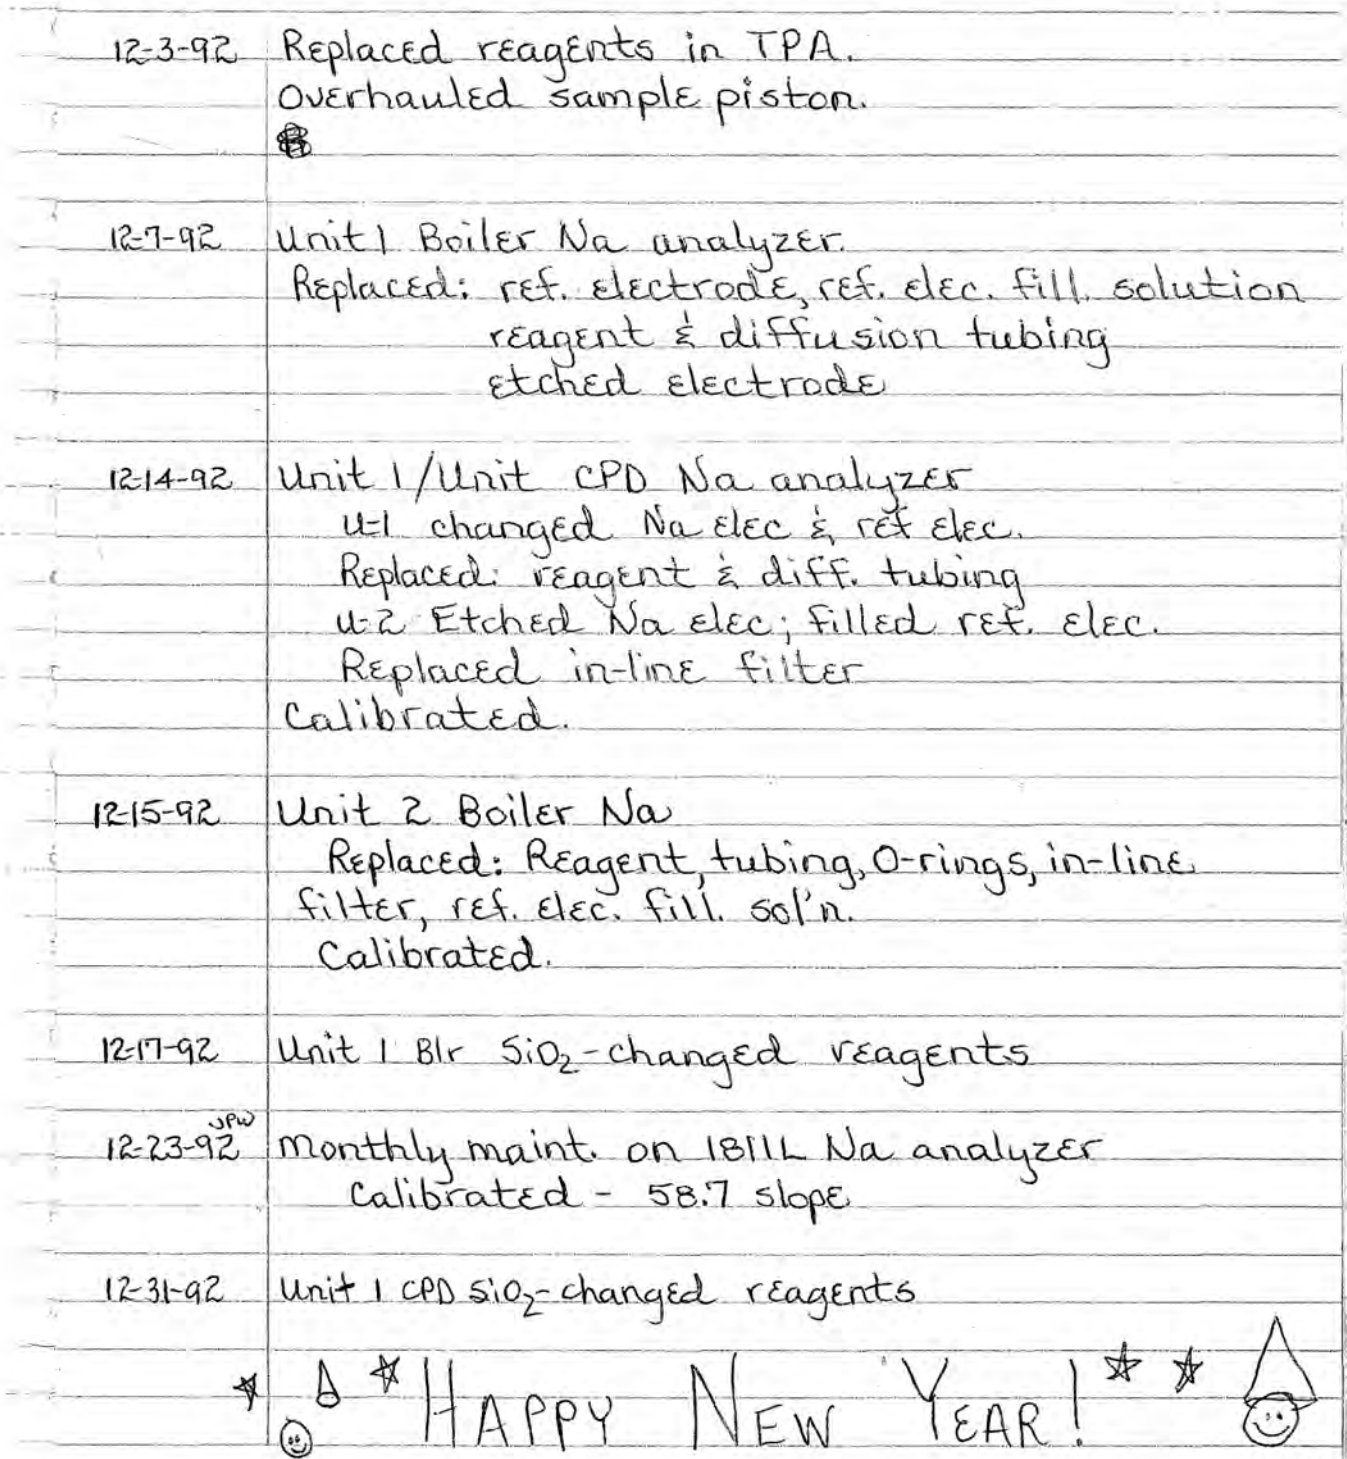 12-3-92 Replaced reagents in TPA.
Overhauled sample piston.
12-7-92 Unit 1 Boiler Na analyzer.
Replaced: ref. electrode, ref. elec. fill. solution
reagent & diffusion tubing
etched electrode
12-14-92 Unit 1/Unit CPD Na analyzer
U-1 changed Na elec & ref elec.
Replaced: reagent & diff. tubing
U-2 Etched Na elec; filled ref. elec.
Replaced in-line filter
Calibrated.
12-15-92 Unit 2 Boiler Na
Replaced: Reagent, tubing, O-rings, in-line
filter, ref. elec. fill. sol'n.
Calibrated.
12-17-92 Unit 1 Blr SiO₂-changed reagents
JPW
12-23-92 Monthly maint. on 1811L Na analyzer
Calibrated - 58.7 slope
12-31-92 Unit 1 CPD SiO₂-changed reagents
HAPPY NEW YEAR!